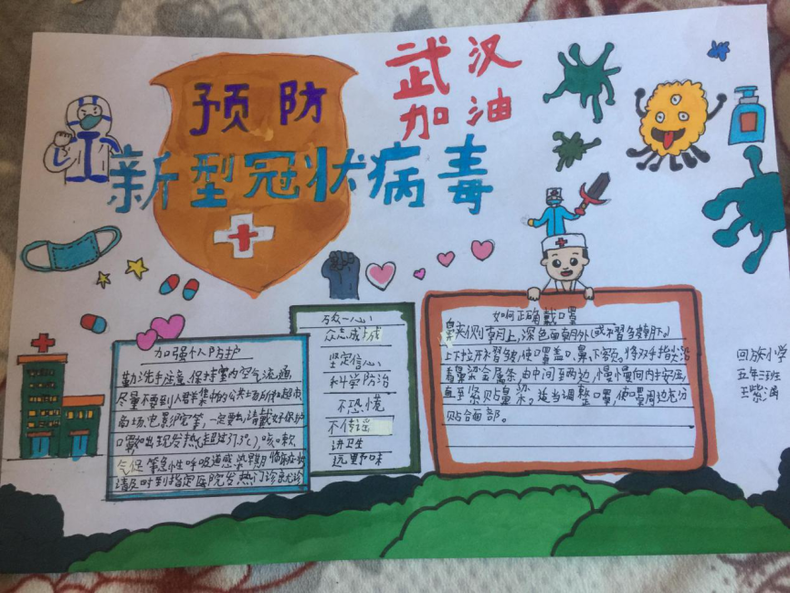 预防
武汉
加油
新型冠状病毒
加强个人防护
勤洗手注意保持室内空气流通
尽量不要到人群集中的公共场所和超市
商场
一定要 戴好保护
口罩如出现发热(超过37℃)咳嗽
等急性呼吸道感染早期临床症状
请及时到指定医院发热门诊就诊
万众一心
众志成城
坚定信心
科学防治
不恐慌
不传谣
讲卫生
远野味
如何正确戴口罩
鼻夹侧朝上,深色面朝外(或褶皱朝下)
上下拉开褶皱,使口罩盖口、鼻、下颌,将双手指尖沿
着鼻梁金属条,由中间至两边,慢慢向内按压,
直至紧贴鼻梁。适当调整口罩,使口罩周边充分
贴合面部。
回族小学
五年三班
王紫涵